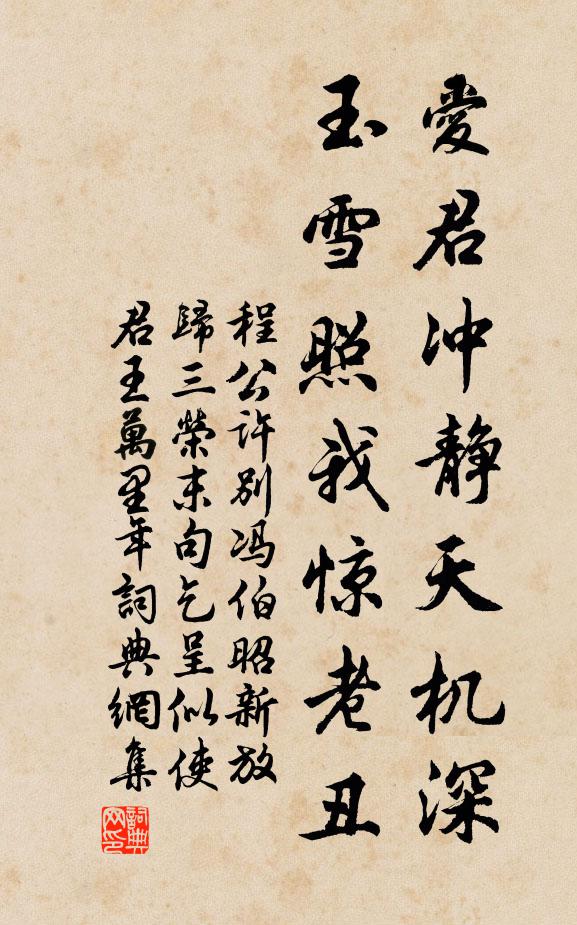 愛君冲静天机深
玉雪照我惊老丑
程公许别冯伯昭新放
歸三荣末句乞呈似使
君王萬里年詞典網集
詞典网印